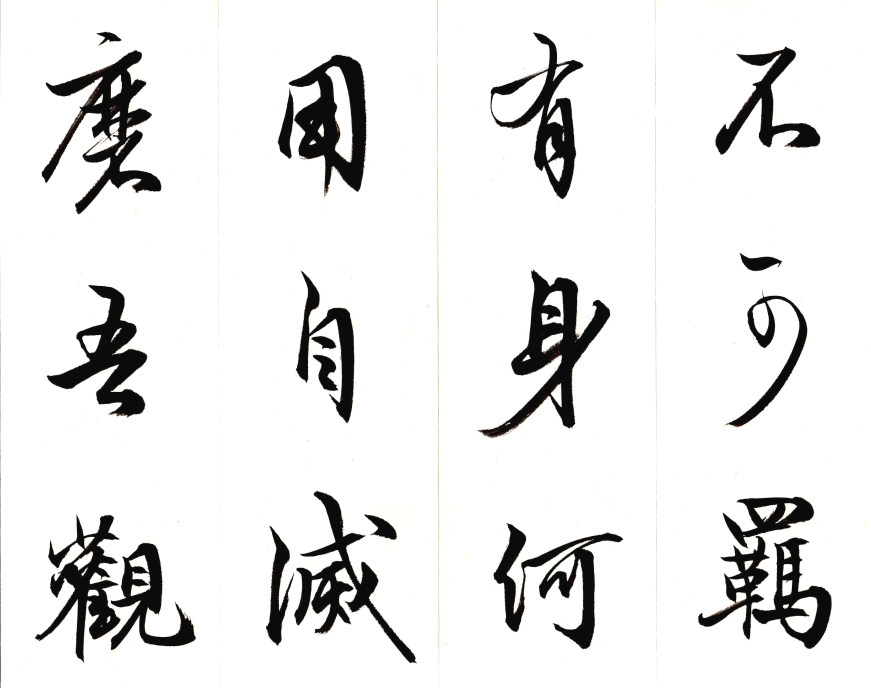 不可羈
有身何
用自滅
磨吾觀